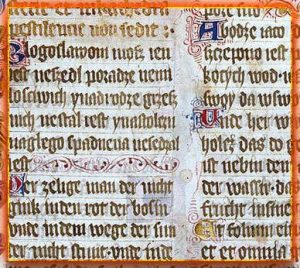 pestilencie non sedit :
Blogoslawoni møsz ien
iest neszedl poradze nemi
losciwich ynadrodze grzesz
nich nestal iest ynastolcu
naglego spadnena nesedzal
iest
Der zelige man der nicht
gink in den rot der bosin
vnde in dem wege der sun
der nicht stunt vnde inde
Abødze iako
szczepno iest
kocych wod
swogy da wsw
Unde her
holcz das do
ist nebin den
der wasser da
frucht
Et folium